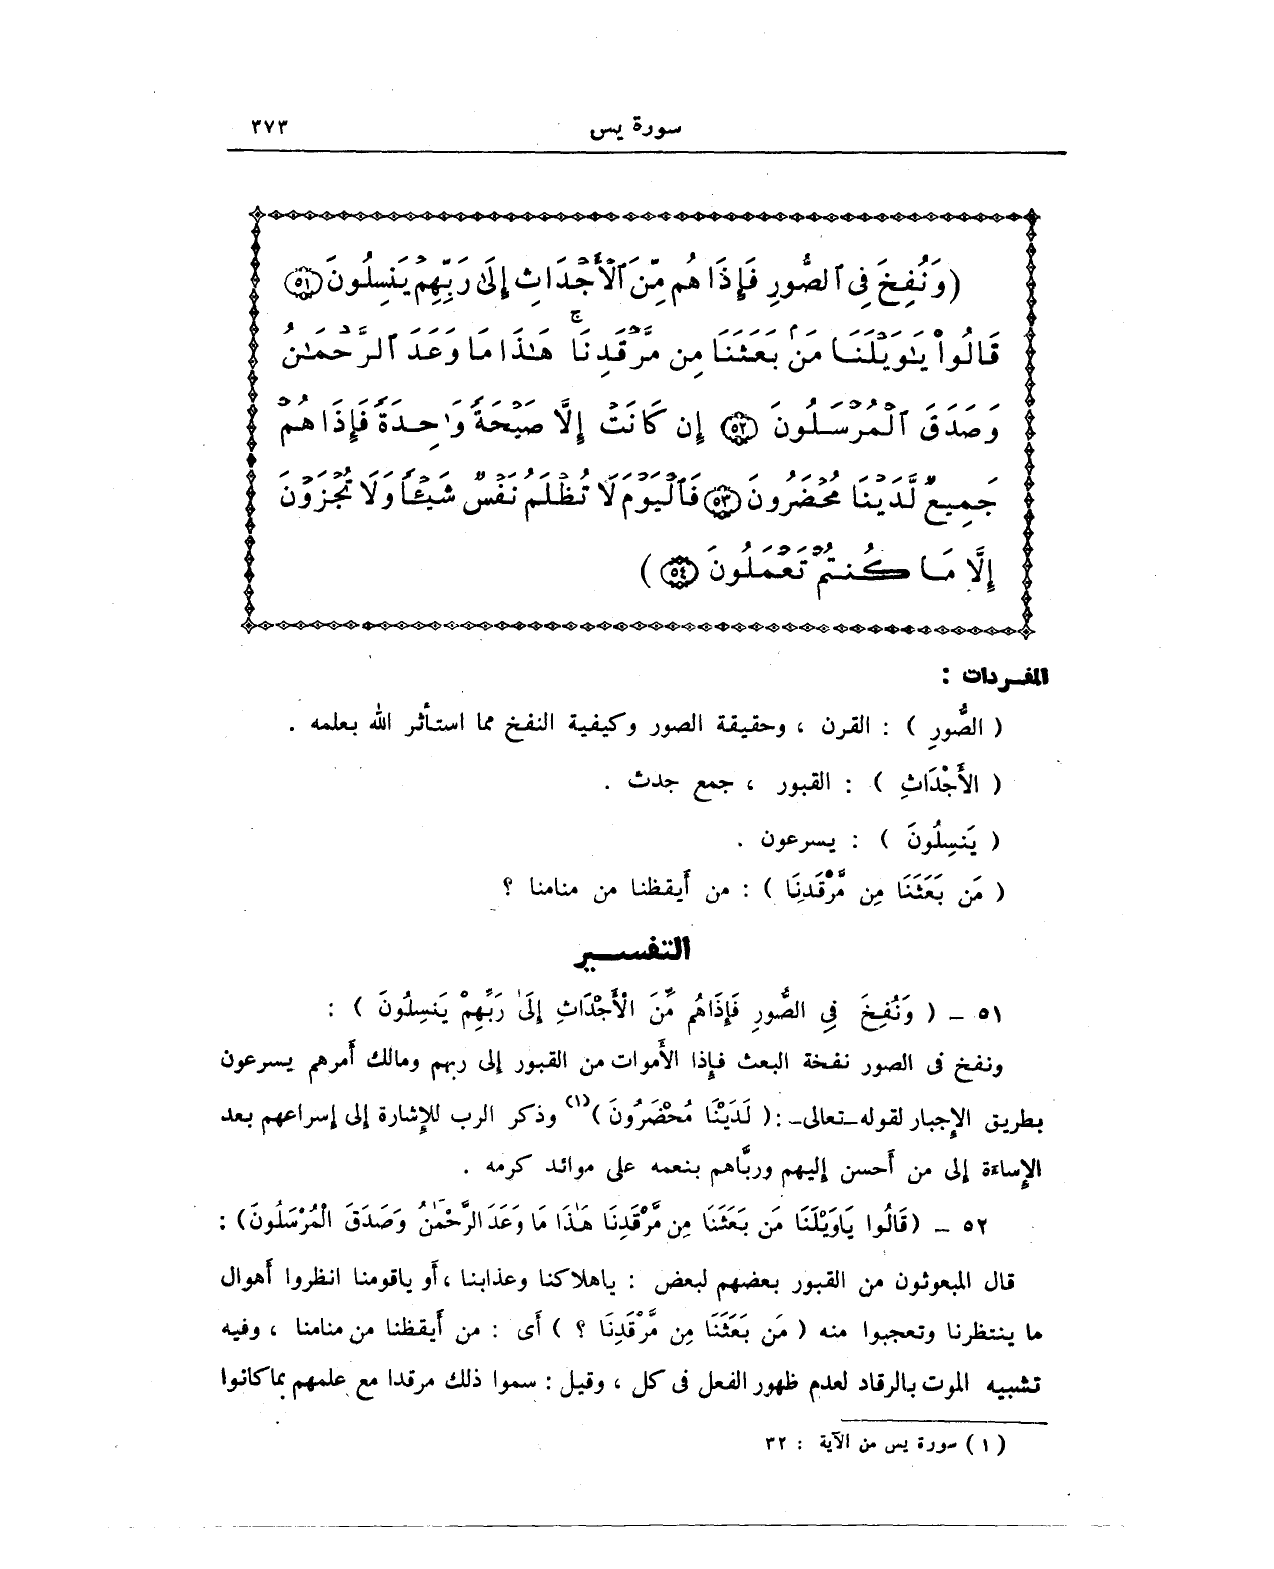 سورة يس ٣٧٣
(وَنُفِخَ فِى ٱلصُّورِ فَإِذَا هُم مِّنَ ٱلْأَجْدَاثِ إِلَىٰ رَبِّهِمْ يَنسِلُونَ ٥١
قَالُوا۟ يَٰوَيْلَنَا مَنۢ بَعَثَنَا مِن مَّرْقَدِنَا ۗ هَٰذَا مَا وَعَدَ ٱلرَّحْمَٰنُ
وَصَدَقَ ٱلْمُرْسَلُونَ ٥٢ إِن كَانَتْ إِلَّا صَيْحَةً وَٰحِدَةً فَإِذَا هُمْ
جَمِيعٌ لَّدَيْنَا مُحْضَرُونَ ٥٣ فَٱلْيَوْمَ لَا تُظْلَمُ نَفْسٌ شَيْـًٔا وَلَا تُجْزَوْنَ
إِلَّا مَا كُنتُمْ تَعْمَلُونَ ٥٤ )
المفردات :
( الصُّورِ ) : القرن ، وحقيقة الصور وكيفية النفخ مما استأثر الله بعلمه .
( الأَجْدَاثِ ) : القبور ، جمع جدث .
( يَنسِلُونَ ) : يسرعون .
( مَن بَعَثَنَا مِن مَّرْقَدِنَا ) : من أيقظنا من منامنا ؟
التفسير
٥١ - ( وَنُفِخَ فِي الصُّورِ فَإِذَاهُم مِّنَ الْأَجْدَاثِ إِلَىٰ رَبِّهِمْ يَنسِلُونَ ) :
ونفخ فى الصور نفخة البعث فإذا الأموات من القبور إلى ربهم ومالك أمرهم يسرعون
بطريق الإجبار لقوله-تعالى- : ( لَدَيْنَا مُحْضَرُونَ )(١) وذكر الرب للإشارة إلى إسراعهم بعد
الإساءة إلى من أحسن إليهم وربَّاهم بنعمه على موائد كرمه .
٥٢ - (قَالُوا يَاوَيْلَنَا مَن بَعَثَنَا مِن مَّرْقَدِنَا هَٰذَا مَا وَعَدَ الرَّحْمَٰنُ وَصَدَقَ الْمُرْسَلُونَ) :
قال المبعوثون من القبور بعضهم لبعض : ياهلاكنا وعذابنا ، أو ياقومنا انظروا أهوال
ما ينتظرنا وتعجبوا منه ( مَن بَعَثَنَا مِن مَّرْقَدِنَا ؟ ) أى : من أيقظنا من منامنا ، وفيه
تشبيه الموت بالرقاد لعدم ظهور الفعل فى كل ، وقيل : سموا ذلك مرقدا مع علمهم بماكانوا
( ١ ) سورة يس من الآية : ٣٢